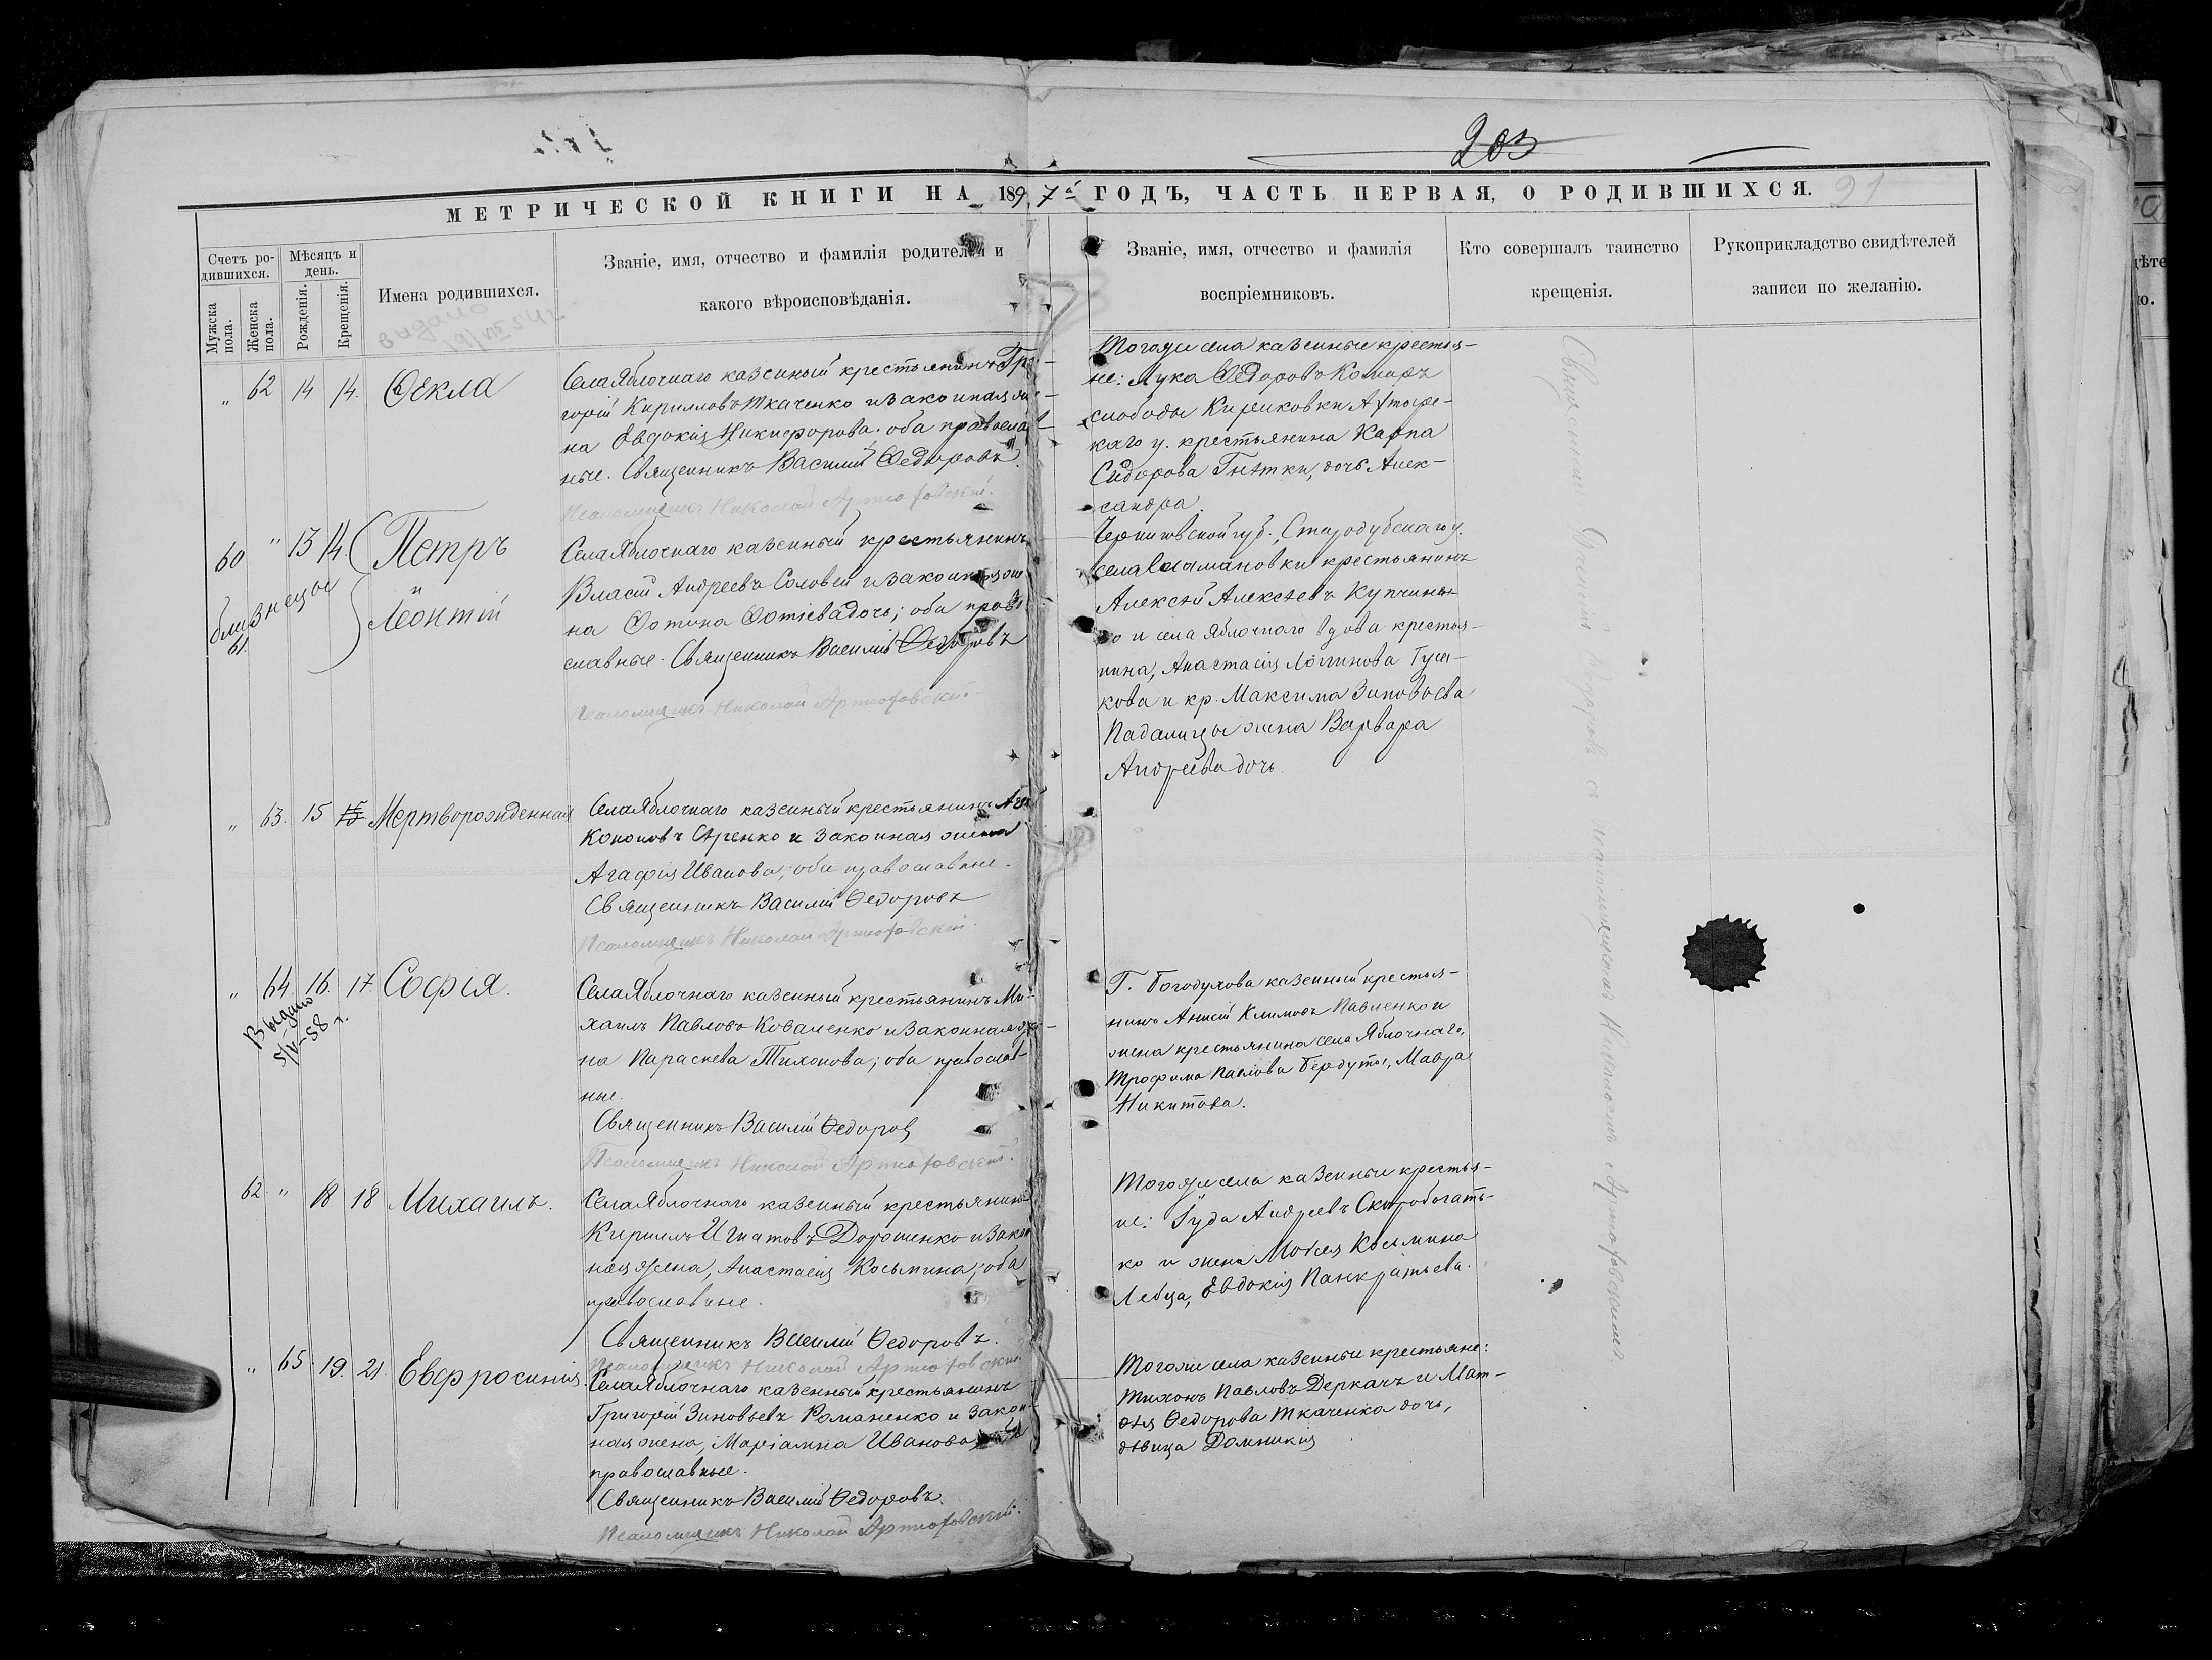 203
МЕТРИЧЕСКОЙ КНИГИ НА 1897й ГОДЪ, ЧАСТЬ ПЕРВАЯ, О РОДИВШИХСЯ.
91
Счетъ ро-
дившихся.
Мужска
пола.
Женска
пола.
Мѣсяцъ и
день.
Рожденія.
Крещенія.
Имена родившихся.
Званіе, имя, отчество и фамилія родителей и
какого вѣроисповѣданія.
Званіе, имя, отчество и фамилія
воспріемниковъ.
Кто совершалъ таинство
крещенія.
Рукоприкладство свидѣтелей
записи по желанію.
видано
„ 62 14 14. Ѳекла
Села Яблочнаго казенный крестьянинъ Гри-
горій Кирилловъ Ткаченко и законная же-
на Евдокія Никифорова. оба православ-
ные. Священникъ Василій Ѳедоровъ.
Псаломщикъ Николай Артюховскій.
Тогоже села казенные крестья-
не: Лука Ѳедоровъ Комаръ
слободы Кириковки Ахтырс-
каго у. крестьянина Карпа
Сидорова Гнѣтки, дочь Алек-
сандра.
60 „ 13 14 Петръ
и
Леонтій
близнецы
61.
Села Яблочнаго казенный крестьянинъ
Власій Андреевъ Соловей и законная же-
на Фотина Фотіева дочь; оба право-
славные. Священникъ Василій Ѳедоровъ
Псаломщикъ Николай Артюховскій.
Черниговской губ. Стародубскаго у.
села крестьянинъ
Алексѣй Алексѣевъ
и села Яблочнаго вдова крестья-
нина, Анастасія Логинова
кова и кр. Максима Зиновьева
Падалицы жена Варвара
Андреева дочь.
„ 63. 15 15 Мертворожденная
Села Яблочнаго казенный крестьянинъ
Кононовъ и законная жена
Агафія Иванова; оба православные.
Священникъ Василій Ѳедоровъ
Псаломщикъ Николай Артюховскій.
„ 64. 16. 17 Софія.
Выдано
5/V-58 г.
Села Яблочнаго казенный крестьянинъ Ми-
хаилъ Павловъ Коваленко и законная же-
на Параскева Тихонова; оба православ-
ные.
Священникъ Василій Ѳедоровъ
Псаломщикъ Николай Артюховскій.
Г. Богодухова казенный крестья-
нинъ Анисій Климовъ Павленко и
жена крестьянина села Яблочнаго,
Трофима Павлова Бердуты, Мавра
Никитова.
62 „ 18 18 Михаилъ.
Села Яблочнаго казенный крестьянинъ
Кириллъ Игнатовъ Дорошенко и закон-
ная жена, Анастасія Косьмина; оба
православные.
Священникъ Василій Ѳедоровъ.
Псаломщикъ Николай Артюховскій.
Тогоже села казенные крестья-
не: Іуда Андреевъ Скоробогать-
ко и жена Моѵсея Косьмина
Лебца, Евдокія Панкратьева.
„ 65 19. 21. Евфросинія.
Села Яблочнаго казенный крестьянинъ
Григорій Зиновьевъ Романенко и закон-
ная жена, Маріамна Иванова, оба
православные.
Священникъ Василій Ѳедоровъ.
Псаломщикъ Николай Артюховскій.
Тогоже села казенные крестьяне:
Тихонъ Павловъ Деркачъ и Мат-
ѳѣя Ѳедорова Ткаченка дочь,
дѣвица Домникія
Священникъ Василій Ѳедоровъ съ псаломщикомъ Николаемъ Артюховскимъ